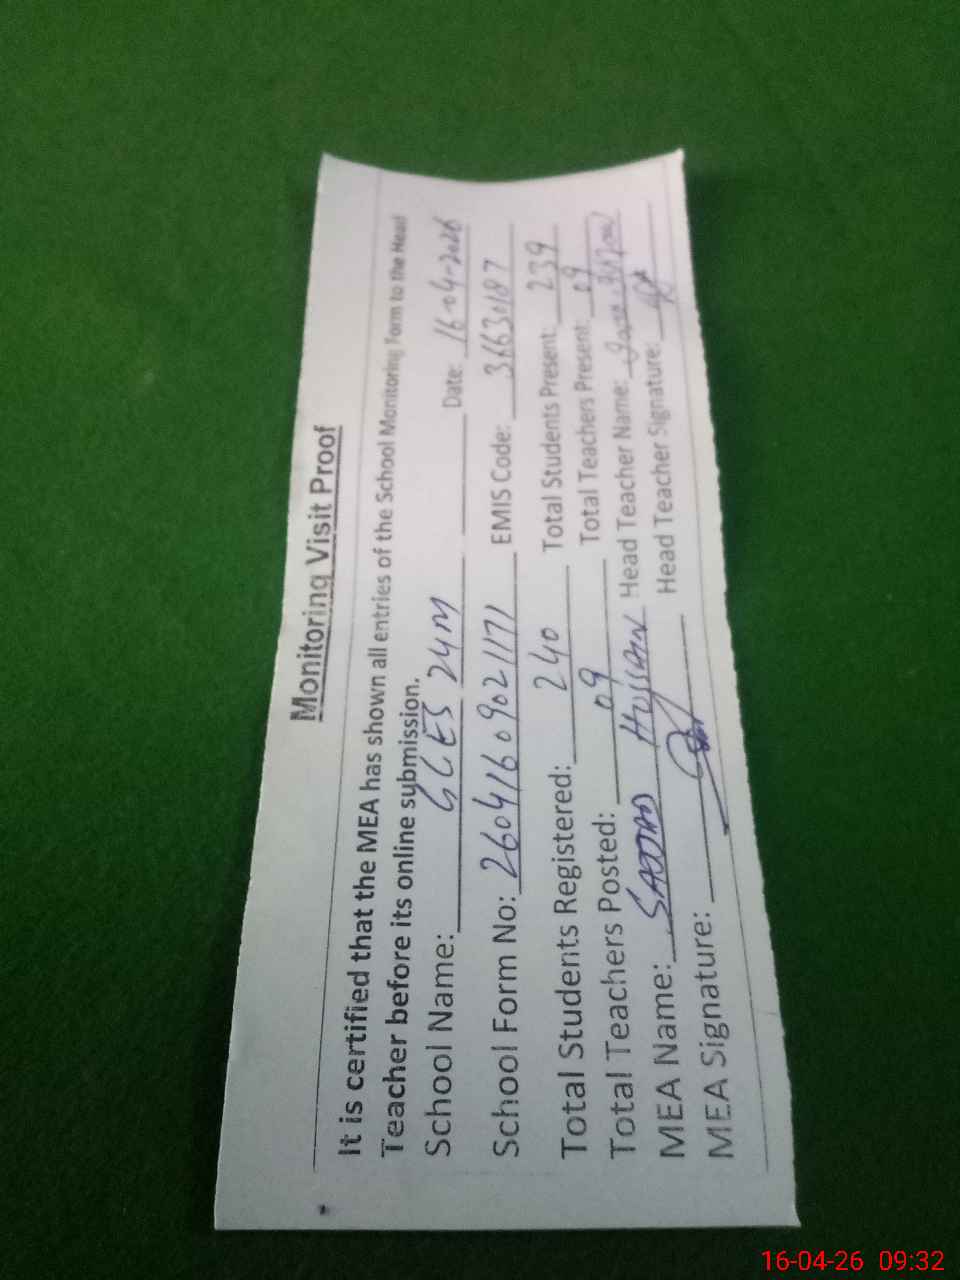 Monitoring Visit Proof
It is certified that the MEA has shown all entries of the School Monitoring Form to the Head
Teacher before its online submission.
School Name: GCES 24M Date: 16-04-2026
School Form No: 26041609021171 EMIS Code: 36630187
Total Students Registered: 240 Total Students Present: 239
Total Teachers Posted: 09 Total Teachers Present: 09
MEA Name: SAJJAD HUSSAIN Head Teacher Name:
MEA Signature: Head Teacher Signature:
16-04-26 09:32